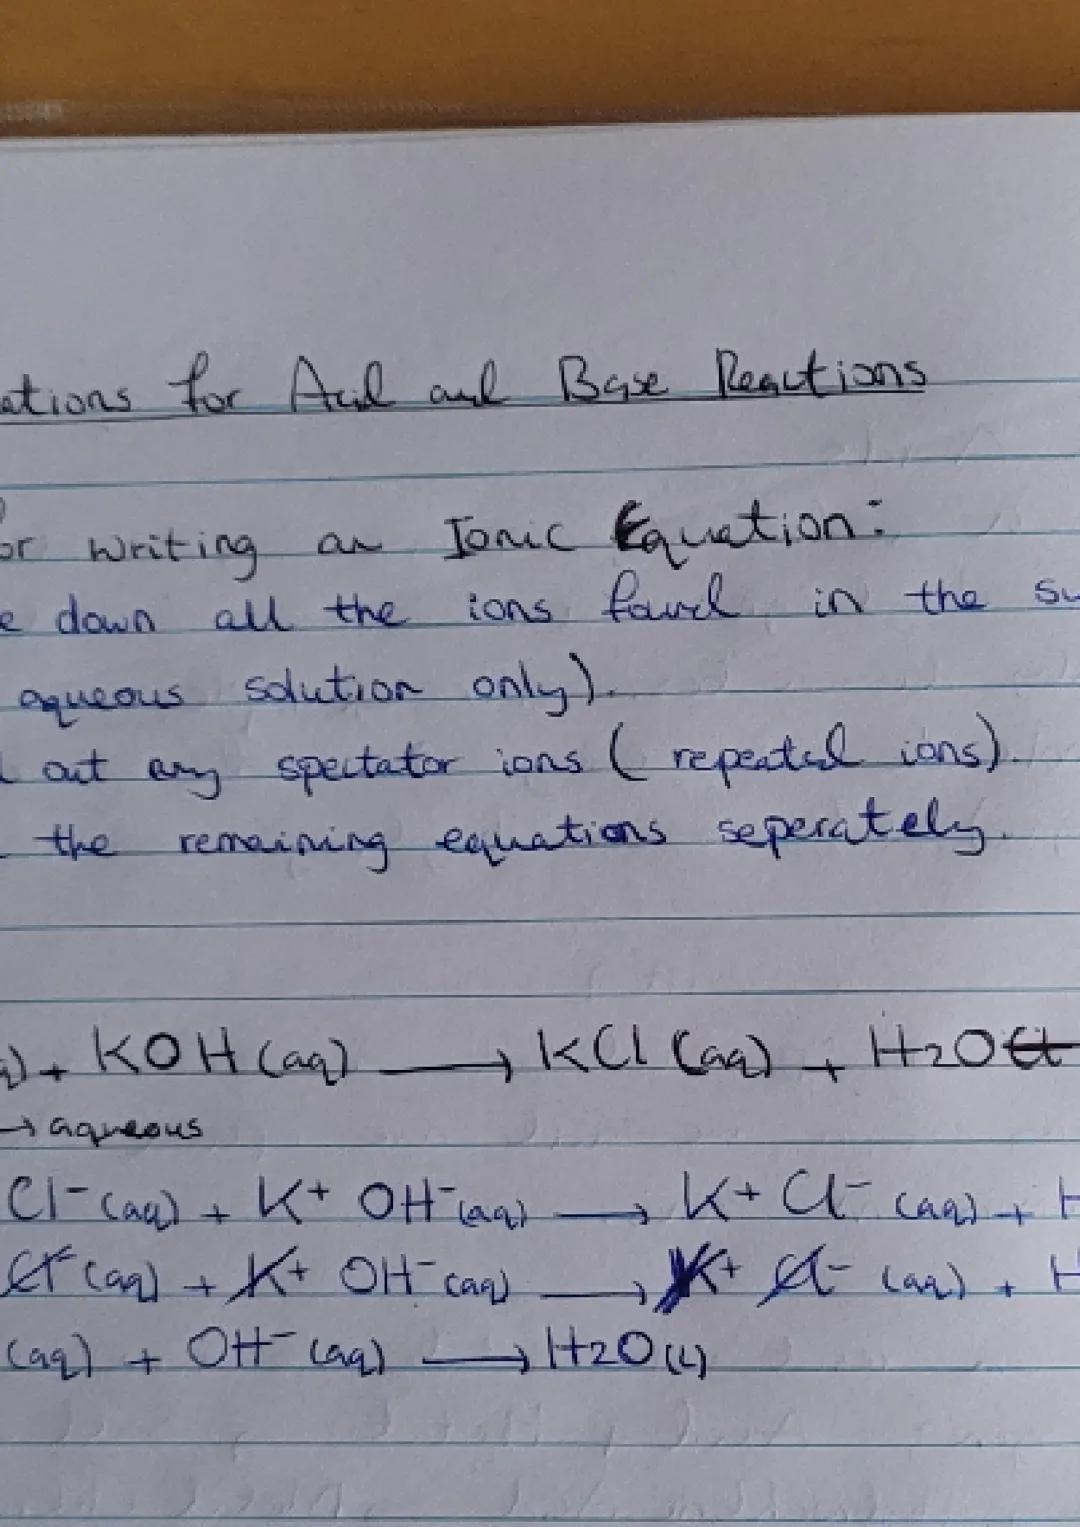 ations for Acid and Base Reactions
or writing an Ionic Equation:
e down all the ions found in the su
aqueous solution only).
out any spectator ions ( repeated ions).
the remaining equations seperately.
q) + KOH (aq) → KCl (aq) + H2O
→ aqueous
Cl- (aq) + K+ OH- (aq) → K+ Cl- (aq) + H
Cl- (aq) + K+ OH- (aq) → K+ Cl- (aq) + H
(aq) + OH- (aq) → H2O (L)